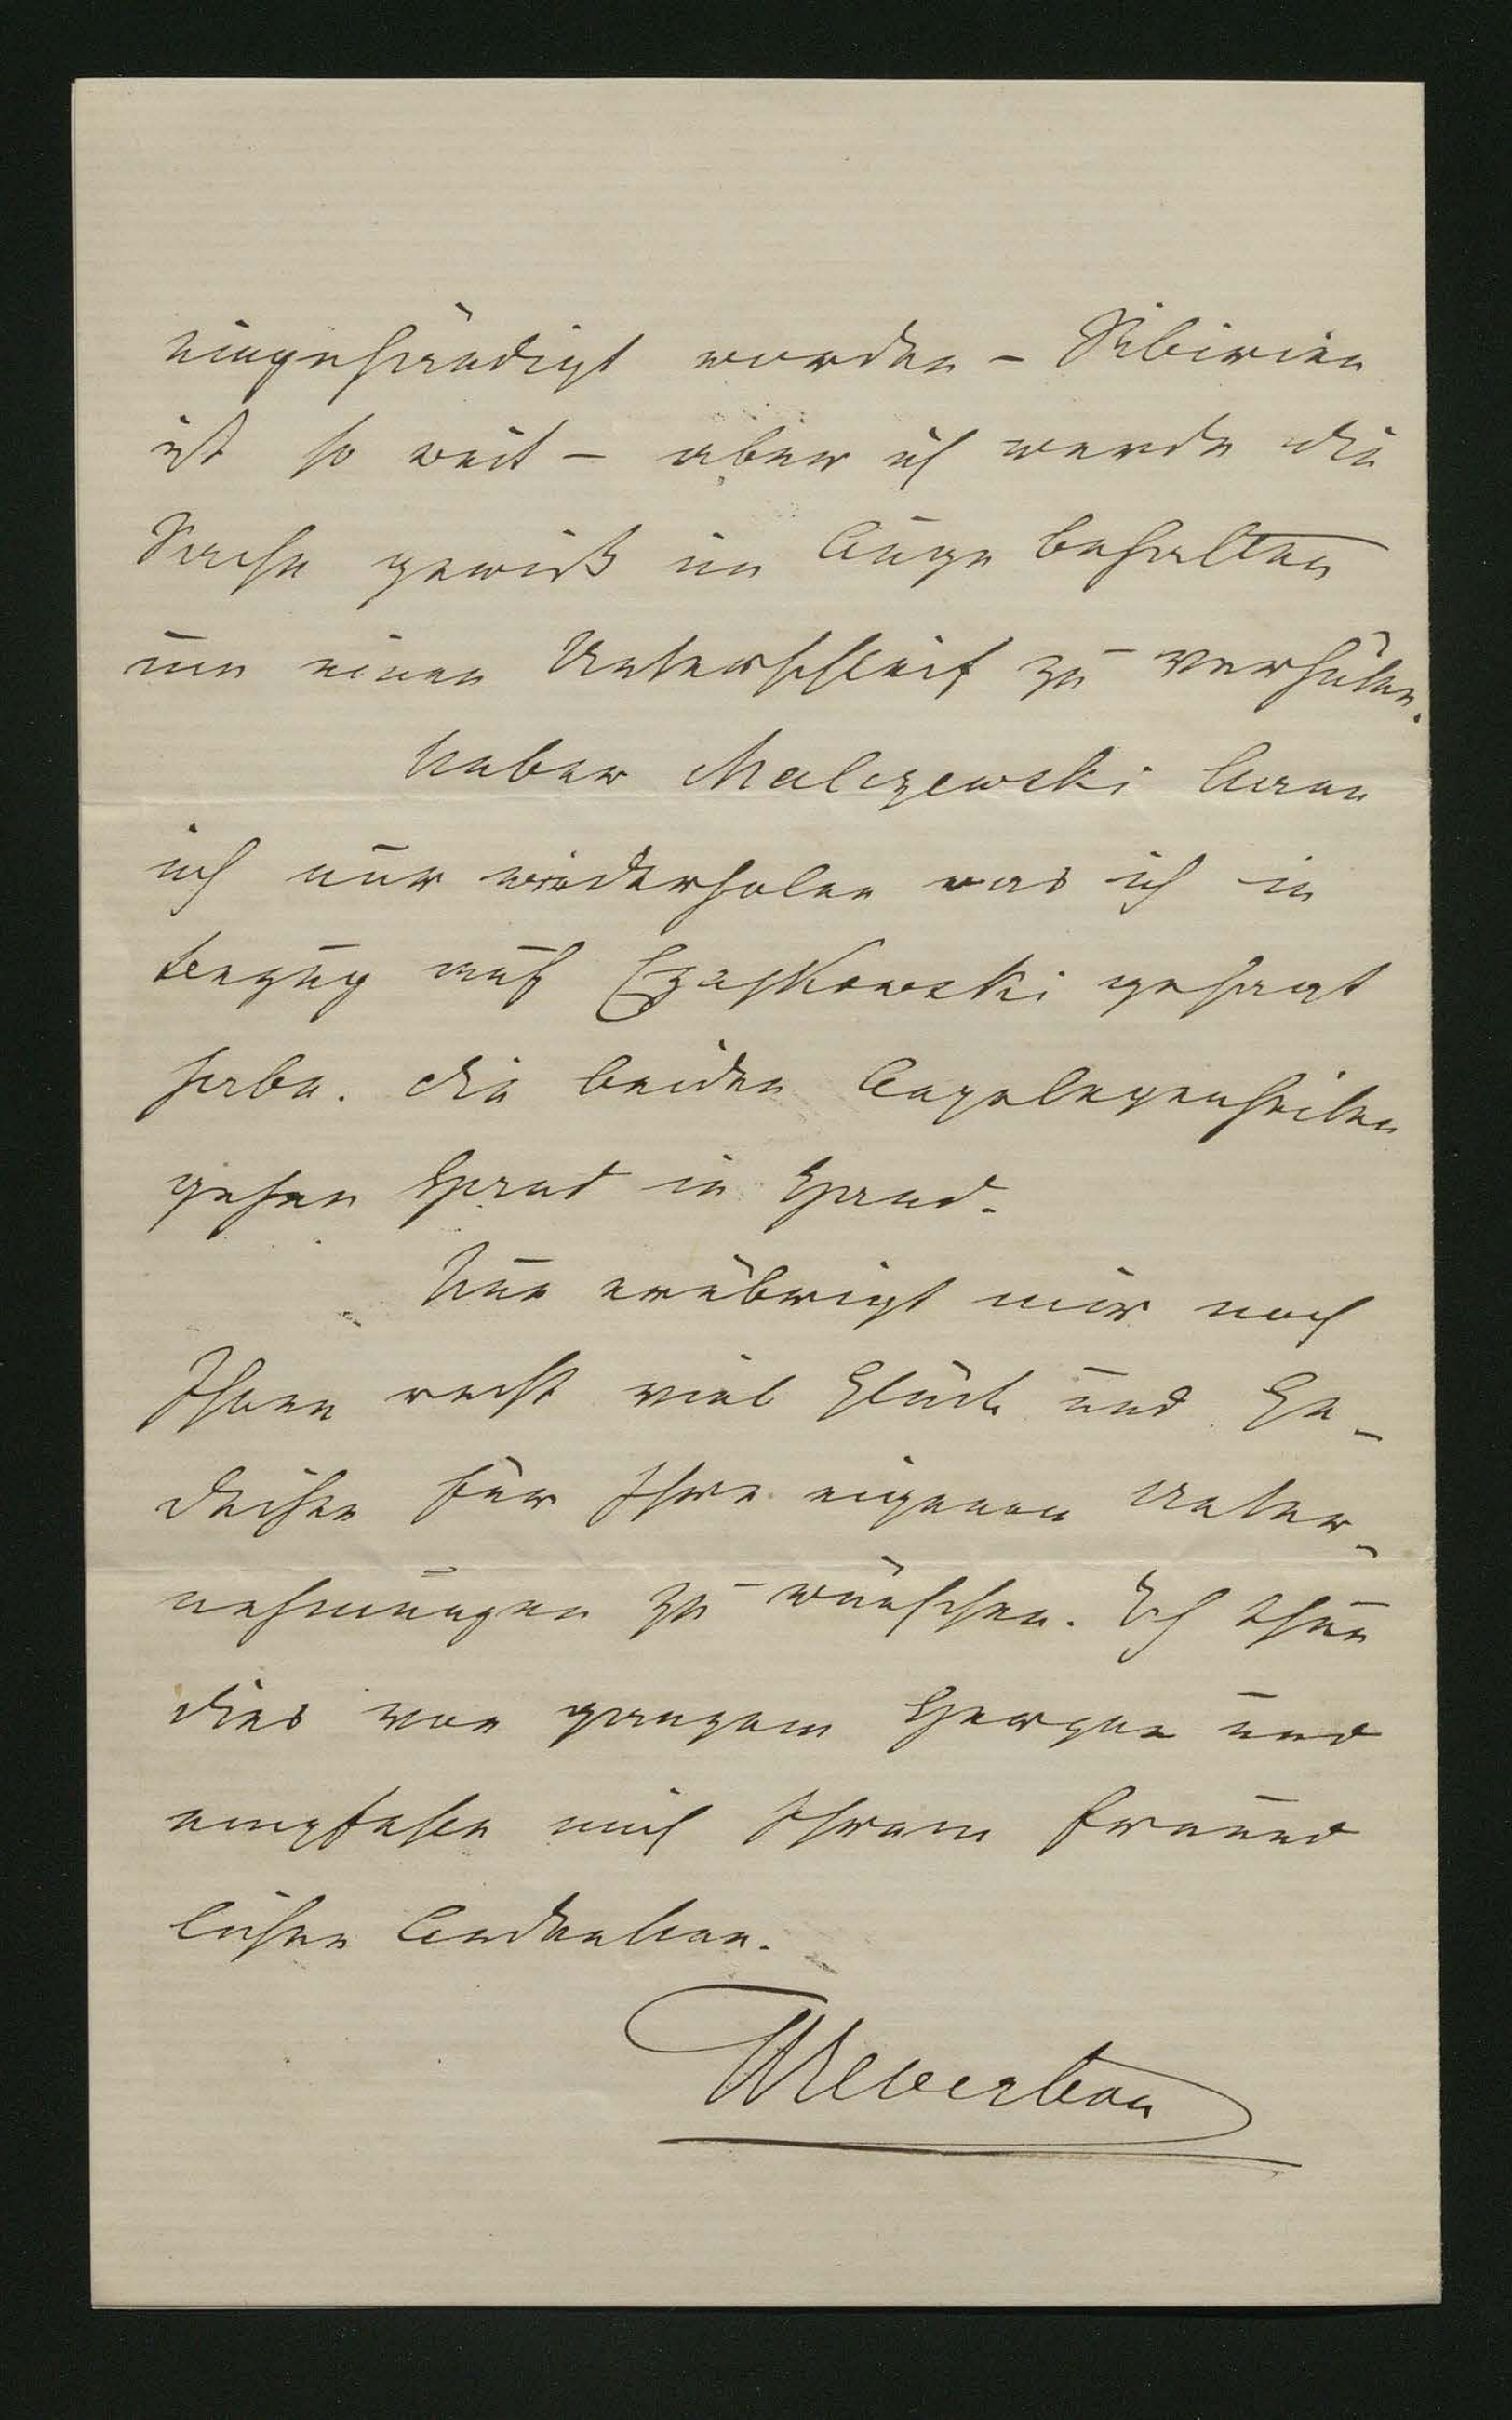 eingehändigt worden – Sibirien
ist so weit – aber ich werde die
Sache gewiß im Auge behalten
um einen Unterschleif zu verhüten.
Ueber Malczewski kann
ich nur wiederholen was ich in
bezug auf Czajkowski gesagt
habe. die beiden Angelegenheiten
gehen Hand in Hand.
Nun erübrigt mir noch
Ihnen recht viel Glück und Ge-
deihen für Ihre eigenen Unter-
nehmungen zu wünschen. Ich thue
dies von ganzem Herzen und
empfehle mich Ihrem freund
lichen Andenken.